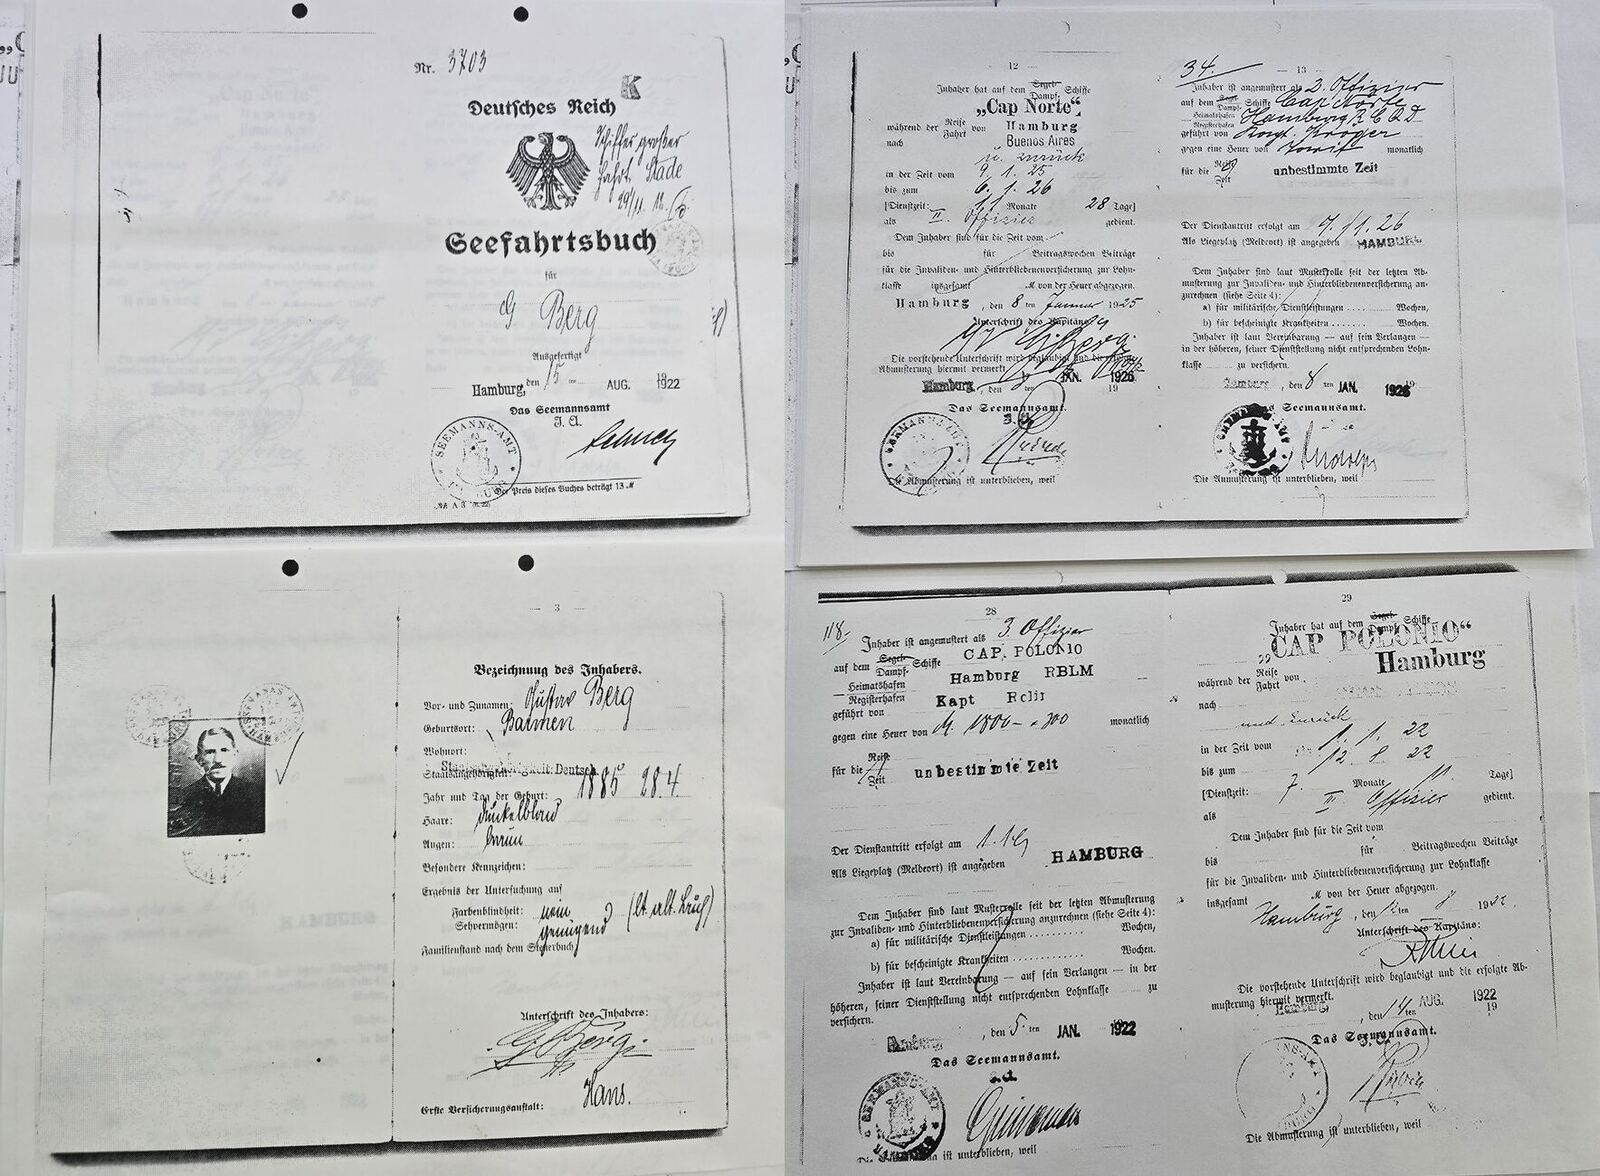 Nr. 3703
K
Deutsches Reich
Schiffer großer
Fahrt. Stade
Seefahrtsbuch
für
G Berg
Ausgefertigt
Hamburg, den 15 ten AUG. 1922
Das Seemannsamt
J. A.
SEEMANNS-AMT
Der Preis dieses Buches beträgt 13 M
12
Inhaber hat auf dem Segel- Dampf- Schiffe
„Cap Norte“
während der Reise Fahrt von Hamburg
nach Buenos Aires
u. zurück
in der Zeit vom 9. 1. 25
bis zum 6. 1. 26
[Dienstzeit: 11 Monate 28 Tage]
als II. Offizier gedient.
Dem Inhaber sind für die Zeit vom
bis für Beitragswochen Beiträge
für die Invaliden- und Hinterbliebenenversicherung zur Lohn-
klasse insgesamt M von der Heuer abgezogen.
Hamburg, den 8 ten Januar 1925
Unterschrift des Kapitäns
Die vorstehende Unterschrift wird beglaubigt und die
Abmusterung hiermit vermerkt
Hamburg, den JAN. 1926
Das Seemannsamt.
J. A.
Die Abmusterung ist unterblieben, weil
34.
13
Inhaber ist angemustert als 2. Offizier
auf dem Segel- Dampf- Schiffe Cap Norte
Heimatshafen Registerhafen Hamburg
geführt von Kapt. Kröger
gegen eine Heuer von Tarif monatlich
für die Reise Zeit unbestimmte Zeit
Der Dienstantritt erfolgt am 7/1. 26
Als Liegeplatz (Meldeort) ist angegeben HAMBURG
Dem Inhaber sind laut Musterrolle seit der letzten Ab-
musterung zur Invaliden- und Hinterbliebenenversicherung an-
zurechnen (siehe Seite 4):
a) für militärische Dienstleistungen Wochen,
b) für bescheinigte Krankheiten Wochen.
Inhaber ist laut Vereinbarung — auf sein Verlangen —
in der höheren, seiner Dienststellung nicht entsprechenden Lohn-
klasse zu versichern.
Hamburg, den 8 ten JAN. 1926
Das Seemannsamt.
Die Anmusterung ist unterblieben, weil
— 3 —
Bezeichnung des Inhabers.
Vor- und Zunamen: Gustav Berg
Geburtsort: Barmen
Wohnort:
Staatsangehörigkeit: Deutsch
Jahr und Tag der Geburt: 1885 28.4.
Haare: dunkelblond
Augen: braun
Besondere Kennzeichen:
Ergebnis der Untersuchung auf
Farbenblindheit: nein
Sehvermögen: genügend (lt. alt. Buch)
Familienstand nach dem Steuerbuch
Unterschrift des Inhabers:
G Berg
Hans.
Erste Versicherungsanstalt:
28
118
Inhaber ist angemustert als 3. Offizier
auf dem Segel- Dampf- Schiffe CAP. POLONIO
Heimatshafen Registerhafen Hamburg RBLM
geführt von Kapt Rolir
gegen eine Heuer von M. 1800- + 300 monatlich
für die Reise Zeit unbestimmte Zeit
Der Dienstantritt erfolgt am 1. 1.
Als Liegeplatz (Meldeort) ist angegeben HAMBURG
Dem Inhaber sind laut Musterrolle seit der letzten Abmusterung
zur Invaliden- und Hinterbliebenenversicherung anzurechnen (siehe Seite 4):
a) für militärische Dienstleistungen Wochen,
b) für bescheinigte Krankheiten Wochen.
Inhaber ist laut Vereinbarung — auf sein Verlangen — in der
höheren, seiner Dienststellung nicht entsprechenden Lohnklasse zu
versichern.
Hamburg, den 5. ten JAN. 1922
Das Seemannsamt.
J. A.
SEEMANNS-AMT
ist unterblieben, weil
29
Inhaber hat auf dem Segel- Dampf- Schiffe
„CAP POLONIO“
Hamburg
während der Reise Fahrt von
nach
und zurück
in der Zeit vom 1. 1. 22
bis zum 12. 8 22
[Dienstzeit: 7 Monate 11 Tage]
als II Offizier gedient.
Dem Inhaber sind für die Zeit vom
bis für Beitragswochen Beiträge
für die Invaliden- und Hinterbliebenenversicherung zur Lohnklasse
insgesamt M von der Heuer abgezogen.
Hamburg, den 12 ten 8 1922.
Unterschrift des Kapitäns:
Die vorstehende Unterschrift wird beglaubigt und die erfolgte Ab-
musterung hiermit vermerkt.
Hamburg, den 14 ten AUG. 1922
Das Seemannsamt.
Die Abmusterung ist unterblieben, weil